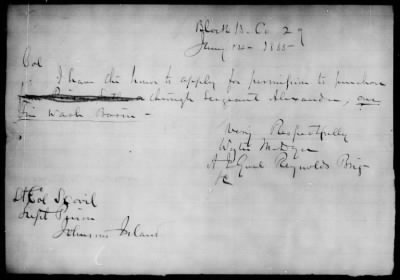 Block 13. Co 29
Jany 12th 1865
Col
I have the honor to apply for permission to purchase
through Sergeant Alexander, one
Tin Wash Basin -
Very Respectfully
A I Genl Reynolds Brig
Lt Col Scovil
Supt Prison
Johnsons Island